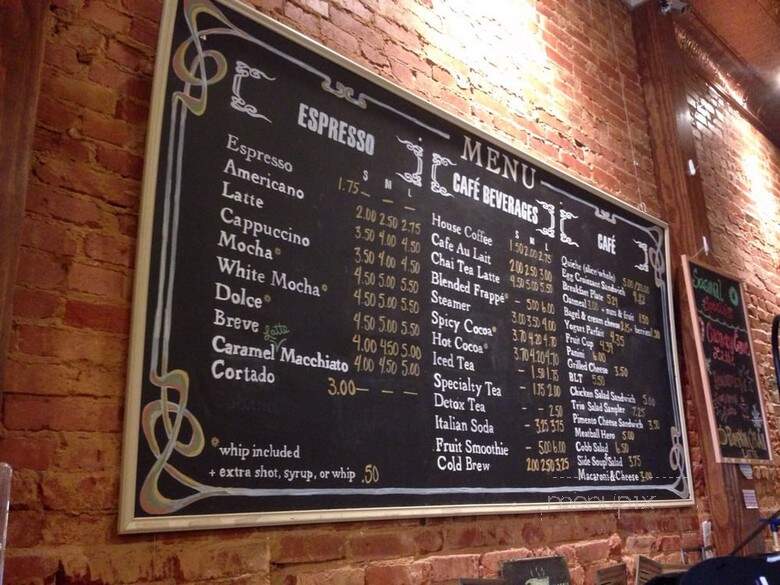 MENU
ESPRESSO
S M L
Espresso 1.75 — —
Americano 2.00 2.50 2.75
Latte 3.50 4.00 4.50
Cappuccino 3.50 4.00 4.50
Mocha* 4.50 5.00 5.50
White Mocha* 4.50 5.00 5.50
Dolce* 4.50 5.00 5.50
Breve latte 4.00 4.50 5.00
Caramel Macchiato 4.00 4.50 5.00
Cortado 3.00 — —
* whip included
+ extra shot, syrup, or whip .50
CAFÉ BEVERAGES
S M L
House Coffee 1.50 2.00 2.75
Cafe Au Lait 2.00 2.50 3.00
Chai Tea Latte 4.50 5.00 5.50
Blended Frappe* - 5.00 6.00
Steamer 3.00 3.50 4.00
Spicy Cocoa* 3.70 4.20 4.70
Hot Cocoa* 3.70 4.20 4.70
Iced Tea - 1.50 1.75
Specialty Tea - 1.75 2.00
Detox Tea - - 2.50
Italian Soda - 3.25 3.75
Fruit Smoothie - 5.00 6.00
Cold Brew 2.00 2.50 3.25
CAFÉ
Quiche (slice/whole) 5.00/20.00
Egg Croissant Sandwich
Breakfast Plate
Oatmeal 3.00 + nuts & fruit 1.50
Bagel & cream cheese
Yogurt Parfait 4.35
Fruit Cup
Panini 6.00
Grilled Cheese 3.50
BLT 5.50
Chicken Salad Sandwich 5.00
Trio Salad Sampler 7.25
Pimento Cheese Sandwich 3.50
Meatball Hero 5.00
Cobb Salad 6.50
Side Soup/Salad 3.75
Macaroni & Cheese 3.00
menupix